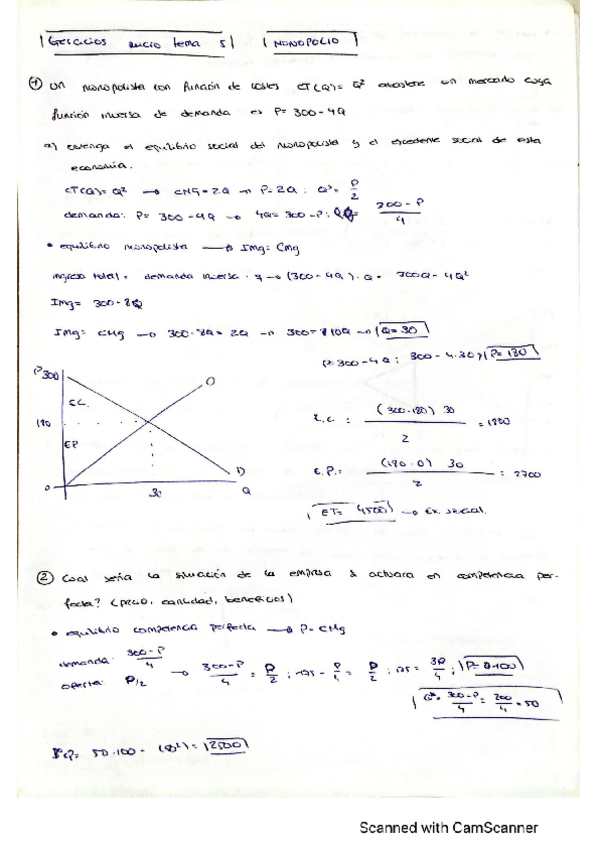 Ejercicios micro tema 5 | MONOPOLIO
① Un monopolista con función de costes CT(Q)= Q² abastece un mercado cuya
función inversa de demanda es P= 300-4Q
a) obtenga el equilibrio social del monopolista y el excedente social de esta
economía.
CT(Q)= Q² → CMG=2Q → P=2Q ; Qˢ= P/2
demanda: P= 300-4Q → 4Q=300-P ; Q= 300-P/4
• equilibrio monopolista → IMg= CMg
ingreso total= demanda inversa · q → (300-4Q)·Q = 300Q-4Q²
IMg= 300-8Q
IMg= CMg → 300-8Q=2Q → 300=10Q → Q=30
P=300-4Q ; 300-4·30 ; P=180
P 300
O
EC.
180
EP
D
0
30
Q
E.C. : (300-180) 30 / 2 = 1800
E.P.: (180-0) 30 / 2 = 2700
ET= 4500 → Ex. social.
② Cual sería la situación de la empresa si actuara en competencia per-
fecta? (precio, cantidad, beneficios)
• equilibrio competencia perfecta → P=CMg
demanda: 300-P/4
oferta: P/2
→ 300-P/4 = P/2 ; 75 - P/4 = P/2 ; 75 = 3P/4 ; P=100
Q*= 300-P/4 = 200/4 = 50
50·100 - (50²) = 2500
Scanned with CamScanner